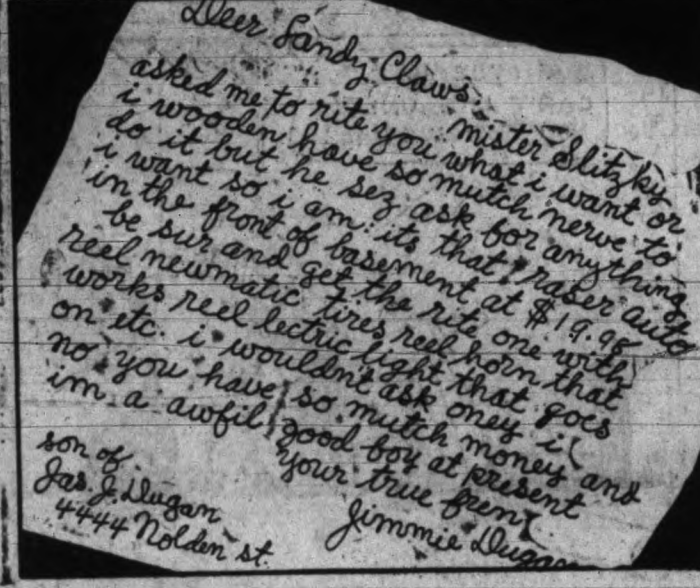 Deer Sandy Claws
mister Slitzky
asked me to rite you what i want or
i wooden have so mutch nerve to
do it but he sez ask for anything
i want so i am: its that raser auto
in the front of basement at $19.98
be sur and get the rite one with
reel newmatic tires reel horn that
works reel lectric light that goes
on etc. i wouldn't ask oney i
no you have so mutch money and
im a awfil good boy at present
your true frend
Jimmie Dugan
son of
Jas. J. Dugan
4444 Nolden st.